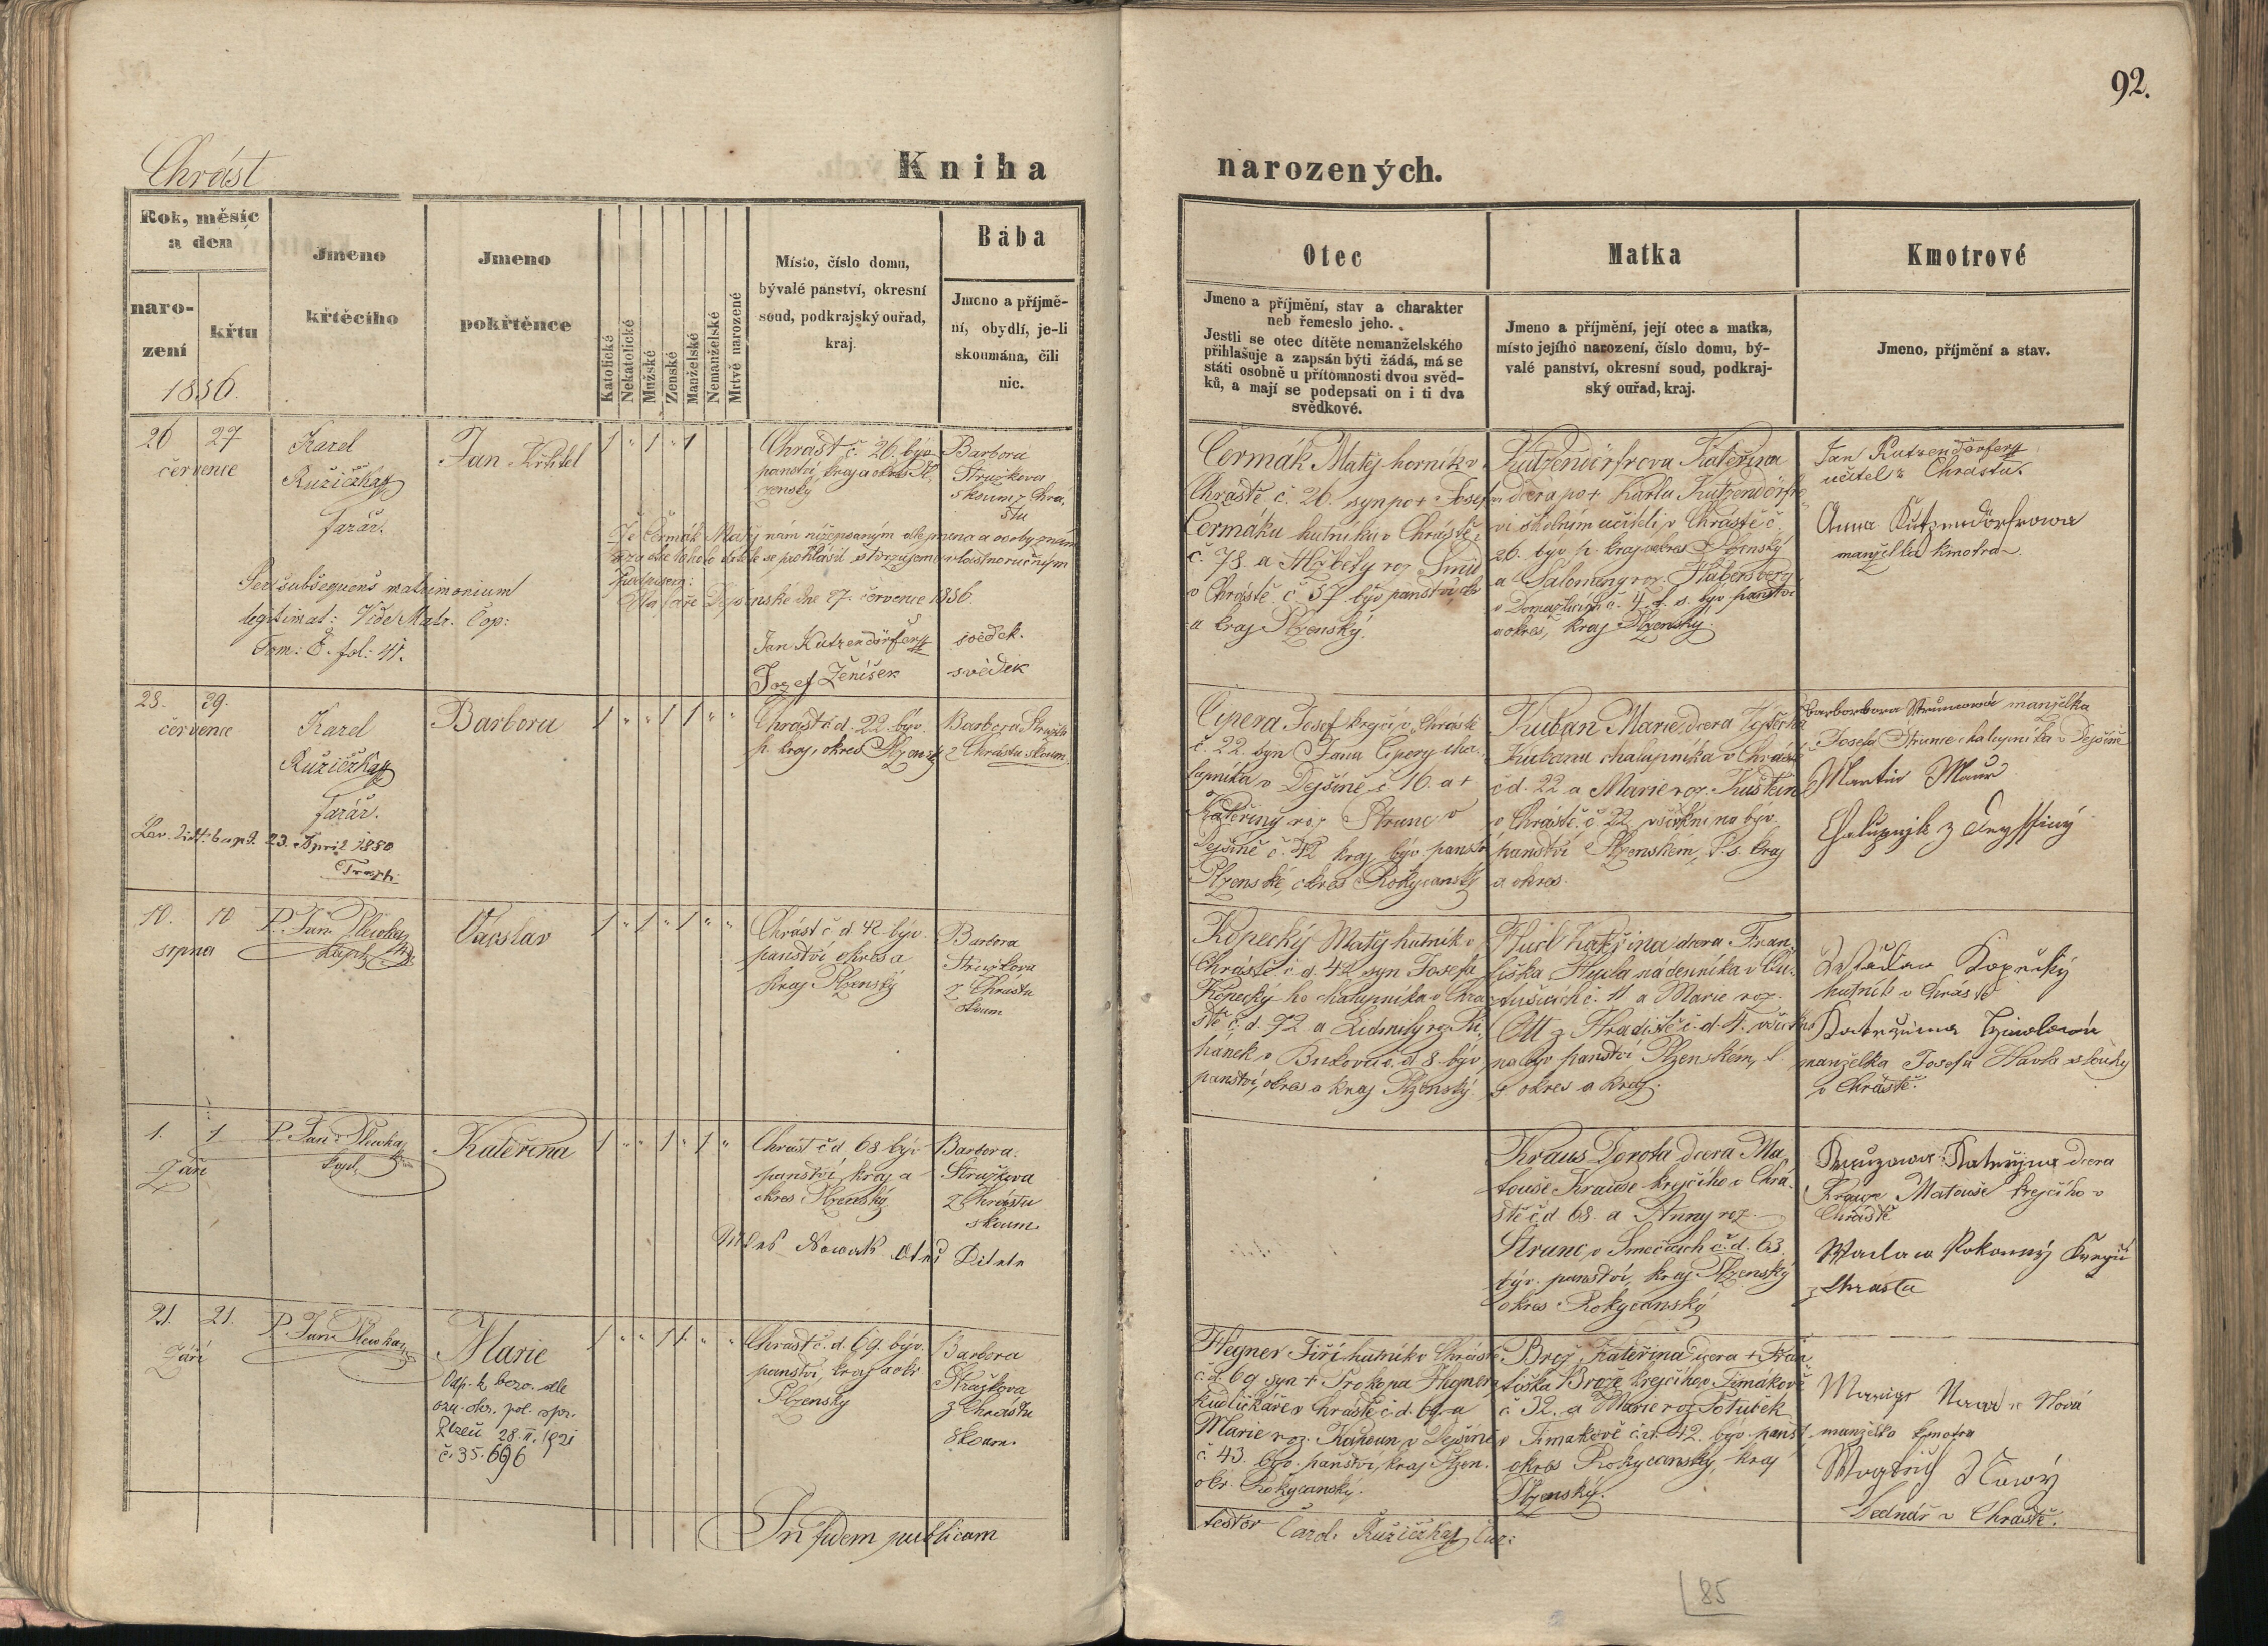 92.
Chrást
Kniha narozených.
Rok, měsíc
a den
naro-
zení
křtu
1856.
Jmeno
křtěcího
Jmeno
pokřtěnce
Katolické
Nekatolické
Mužské
Ženské
Manželské
Nemanželské
Mrtvě narozené
Místo, číslo domu,
bývalé panství, okresní
soud, podkrajský ouřad,
kraj.
Bába
Jmeno a příjmě-
ní, obydlí, je-li
skoumána, čili
nic.
Otec
Jmeno a příjmění, stav a charakter
neb řemeslo jeho.
Jestli se otec dítěte nemanželského
přihlašuje a zapsán býti žádá, má se
státi osobně u přítomnosti dvou svěd-
ků, a mají se podepsati on i ti dva
svědkové.
Matka
Jmeno a příjmění, její otec a matka,
místo jejího narození, číslo domu, bý-
valé panství, okresní soud, podkraj-
ský ouřad, kraj.
Kmotrové
Jmeno, příjmění a stav.
26 27
července
Karel
Růžička
farář.
Jan Křtitel
Chrást č. 26. býv.
panství, kraj a okres Pl-
zenský
Barbora
Stružkova
skoum z Chrá-
stu
Že Čermák Matěj nám nížepsaným dle jmena a osoby znám
a za otce tohoto dítěte se prohlásil stvrzujeme vlastnoručným
podpisem:
Na faře Dejšinské dne 27. července 1856.
Jan Kutzendörfer svědek.
Jozef Ženíšek svědek
Per subsequens matrimonium
legitimat: Vide Matr. Cop:
Tom: 8. fol: 41.
Čermák Matěj horník v
Chrástě č. 26. syn po + Josefu
Čermáku hutníku v Chrástě
č. 78. a Alžběty roz. Šmíd
v Chrástě č. 57 býv panství, ok
a kraj Plzenský.
Kutzendörfrova Kateřina
dcera po + Karlu Kutzendörfro-
vi školním učiteli v Chrástě č.
26. býv. p. kraj a okres Plzenský
a Salomeny roz. Habensberg
v Domažlicích č. 4. t. s. býv. panství
a okres, kraj Plzenský.
Jan Kutzendörfer
učitel z Chrástu.
Anna Kutzendörfrowa
manželka kmotra
28. 29.
července
Karel
Růžička
farář.
Lev. 23. April 1850
Barbora
Chrást č. d. 22. býv.
p. kraj, okres Plzenský
Barbora Stružko
z Chrástu skoum.
Cipera Josef krejčí v Chrástě
č. 22. syn Jana Cipery cha-
lupníka v Dejšině č. 16. a +
Kateřiny roz. Strunc v
Dejšině č. 42 kraj býv. panstv
Plzenské, okres Rokycanský
Kuban Marie dcera Vojtěcha
Kubana chalupníka v Chrástě
č d. 22 a Marie roz.
v Chrástě č 22 všickni na býv.
panství Plzenském, t. s. kraj
a okres.
Barborbora Struncová manželka
Josefa Strunce chalupníka v Dejšině
Martin Maur
Chalupnjk z Deyssiny
10. 10
srpna
P. Jan Plewka
kapl.
Váslav
Chrást č d 42 býv.
panství okres a
kraj Plzenský
Barbora
Stružkova
z Chrástu
skoum
Kopecký Matěj hutník v
Chrástě č d. 42 syn Josefa
Kopeckýho chalupníka v Chrá
stě č. d. 92 a Lidmily roz. Ři-
hánek v Bukovci č. d. 8. býv
panství, okres a kraj Plzenský.
Kateřina dcera Fran-
tiška nádenníka v
č. 11 a Marie roz.
Ott z Hradiště č. d. 4. všickni
na býv. panství Plzenském, t.
s. okres a kraj.
Kopecký
hutník v Chrástě
Katržina
manželka Josefa Havla
v Chrástě.
1. 1
Září
P. Jan Plewka
kapl.
Kateřina
Chrást č d. 68 býv
panství, kraj a
okres Plzenský
Barbora.
Stružkova
z Chrástu
skoum.
Nowak Otec Ditete
Kraus Dorota dcera Ma-
touše Krause krejčího v Chrá-
stě č d 68. a Anny roz.
Strunc v Smečicech č. d. 63.
býv. panství, kraj Plzenský
okres Rokycanský
Krauzowa Kateržina dcera
Krause Matouše krejčího v
Chrástě
Waclaw Pokorný Kregči
z Chrasta
21. 21.
Září
P. Jan Plewka
Marie
Odp. k bezv. dle
ozn. okr. pol. spr.
Plzeň 28. II. 1921
č. 35.696
Chrást č. d. 69. býv.
panství, kraj a okr
Plzenský
Barbora
Stružkova
z Chrástu
skoum.
Hegner Jiří hutník v Chrástě
č. d. 69 syn + Prokopa Hegnera
kudličkáře v Chrástě č. d. 69. a
Marie roz. v Dejšině
č. 43. býv. panství, kraj Plzen.
okr. Rokycanský.
Brož Kateřina dcera + Fran
tiška Brože krejčího v Timakově
č. 32. a Marie roz. Potuček
v Timakově č. d. 42. býv. panst.
okres Rokycanský, kraj
Plzenský.
Nová
manželka kmotra
Nowý
bednář v Chrástě.
In fidem publicam
testor Carol. Růžička Cur:
85